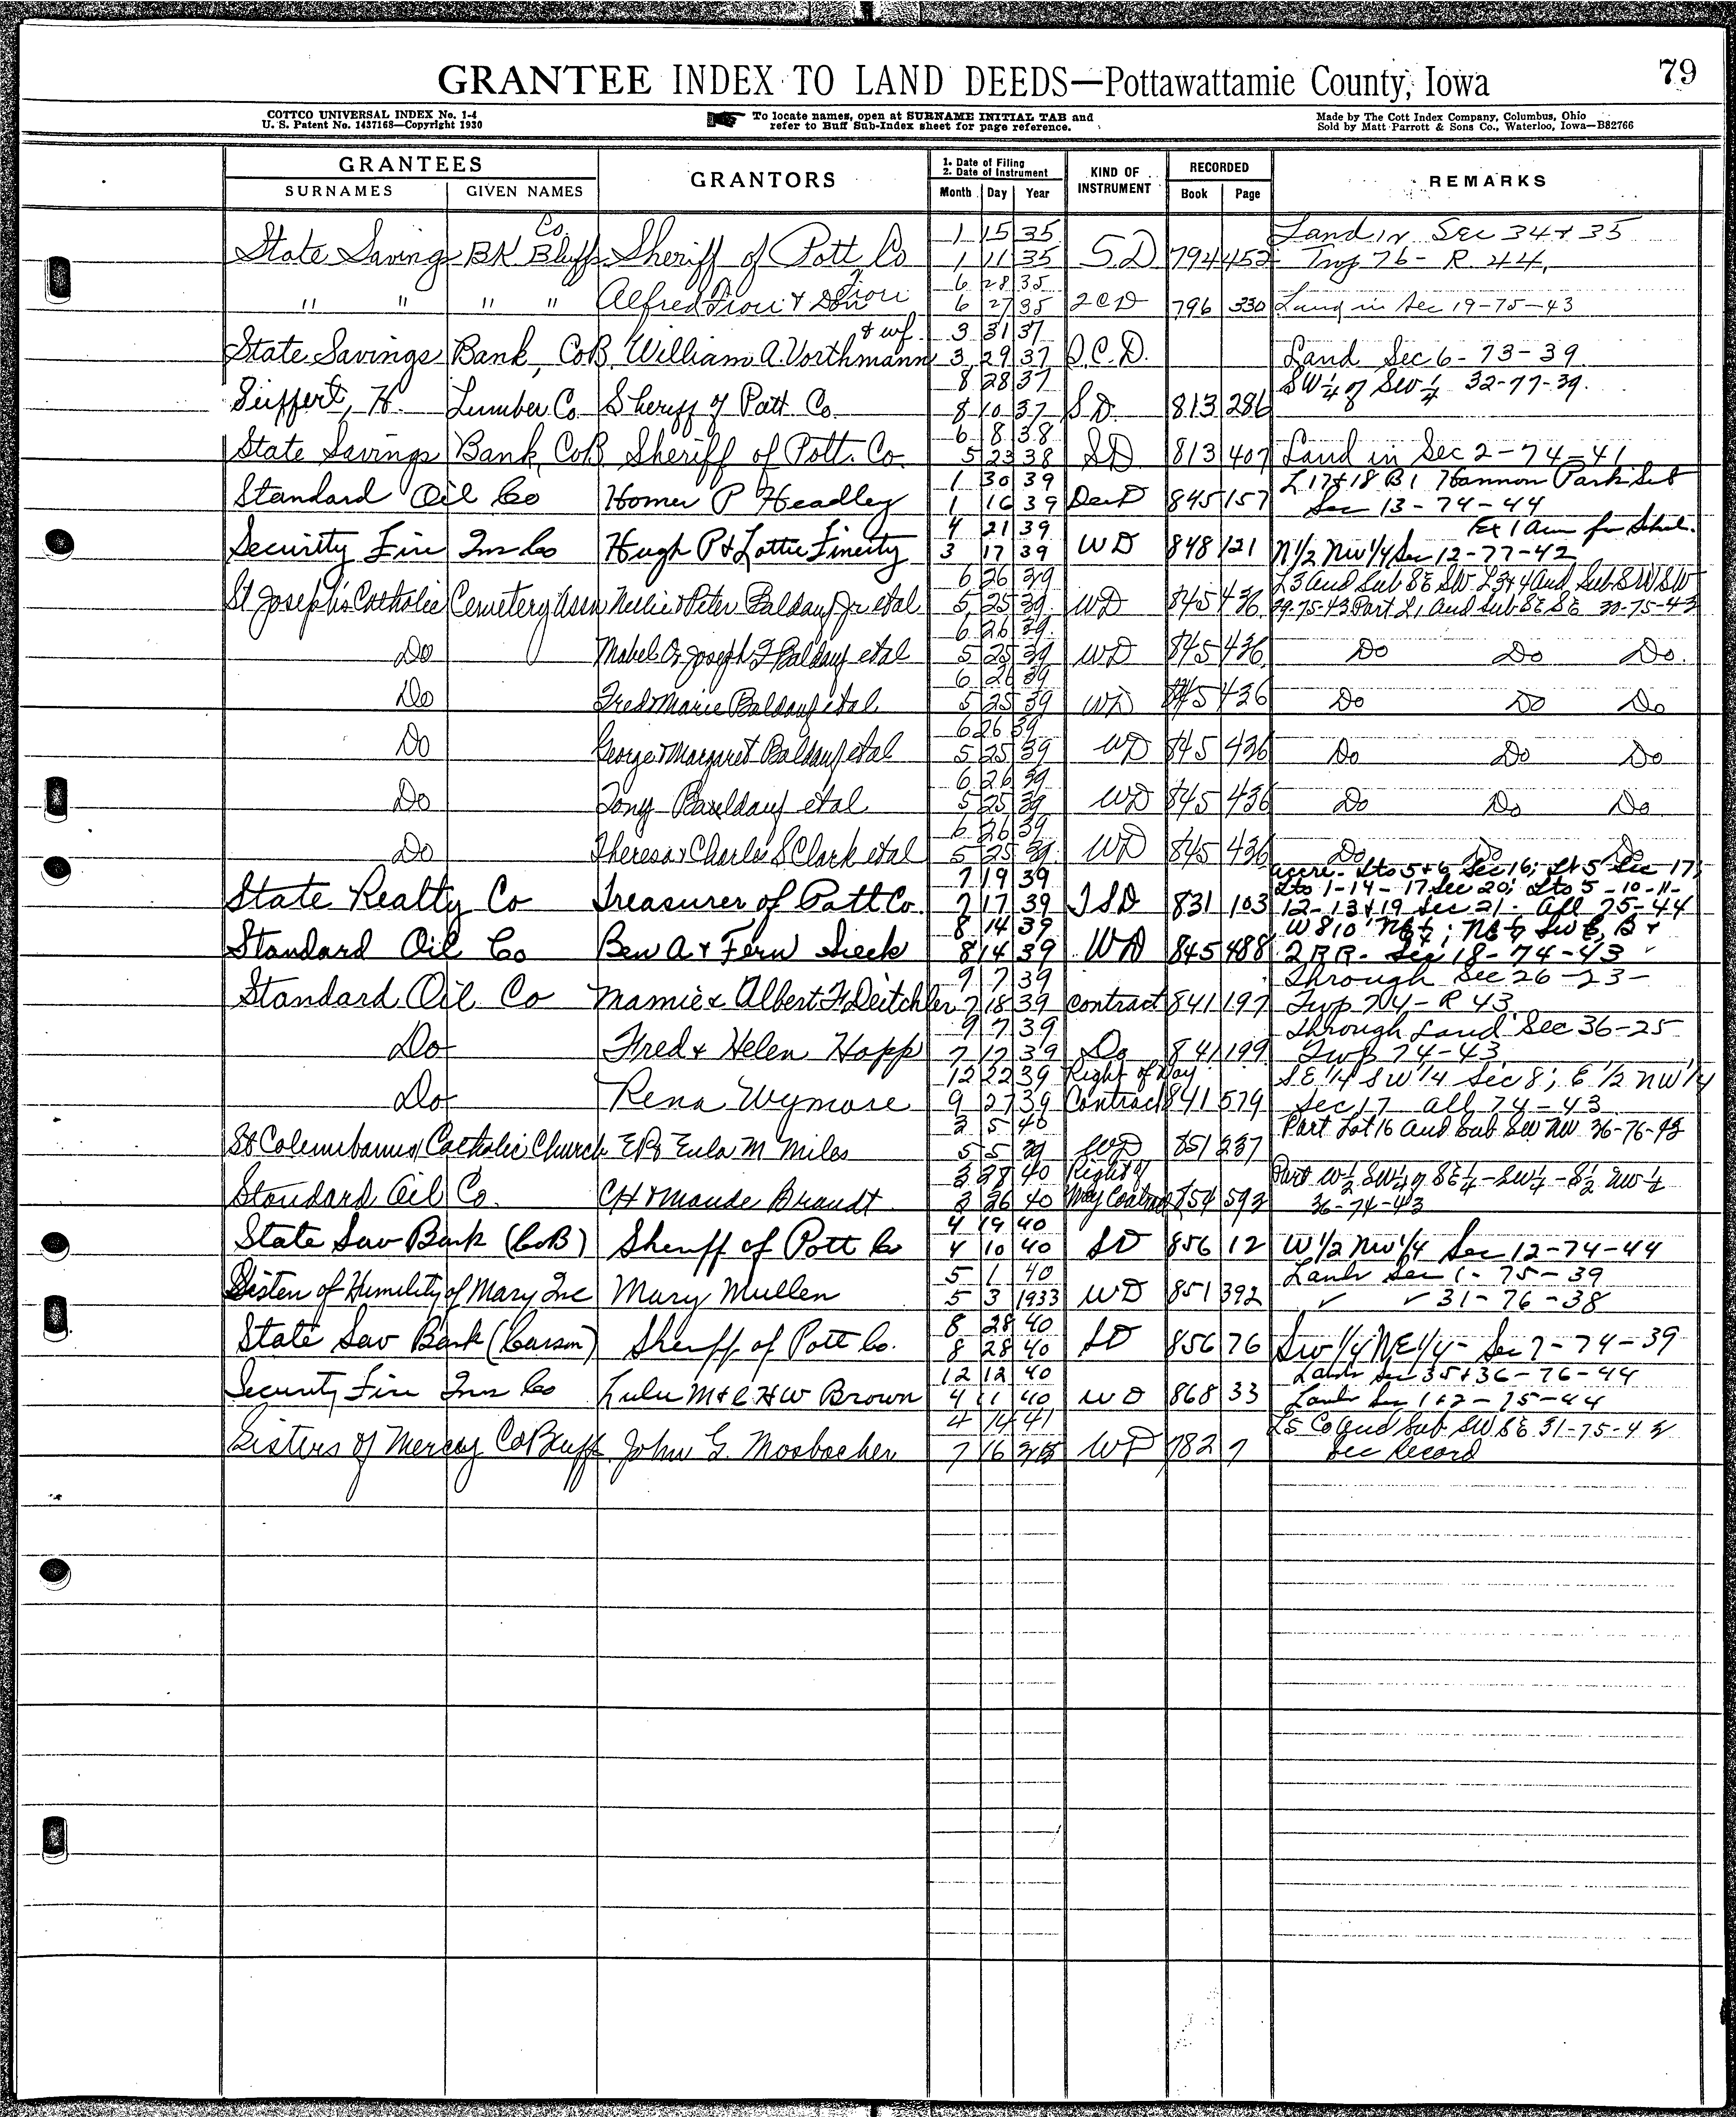 79
GRANTEE INDEX TO LAND DEEDS—Pottawattamie County, Iowa
COTTCO UNIVERSAL INDEX No. 1-4
U. S. Patent No. 1437168—Copyright 1930
To locate names, open at SURNAME INITIAL TAB and
refer to Buff Sub-Index sheet for page reference.
Made by The Cott Index Company, Columbus, Ohio
Sold by Matt Parrott & Sons Co., Waterloo, Iowa—B82766
GRANTEES GRANTORS 1. Date of Filing 2. Date of Instrument KIND OF INSTRUMENT RECORDED REMARKS
SURNAMES GIVEN NAMES Month Day Year Book Page
Co. 1 15 35 Land in Sec 34 & 35
State Saving BK Bluffs Sheriff of Pott Co 1 11 35 S.D 794 452 Twp 76 - R. 44.
6 28 35
" " " " Alfred & 6 27 35 2CD 796 330 Land in Sec 19-75-43
& wf. 3 31 37
State Savings Bank, CoB. William A. Vorthmann 3 29 37 Q.C.D. Land Sec 6 - 73-39
8 28 37 SW 1/4 of SW 1/4 32-77-39.
Seiffert, H. Lumber Co Sheriff of Pott. Co. 8 10 37 S.D. 813 286
6 8 38
State Savings Bank CoB Sheriff of Pott. Co. 5 23 38 SD 813 407 Land in Sec 2-74-41
1 30 39 L 17 & 18 B 1 Hannon Park Sub
Standard Oil Co Homer P Headley 1 16 39 Deed 845 157 Sec 13-74-44
4 21 39 Ex 1 acre for Schol.
Security Fire Ins Co Hugh P & Lottie Finerty 3 17 39 WD 848 121 N 1/2 NW 1/4 Sec 12-77-42
6 26 39 L3 and Sub SE SW L 3 & 4 and Sub SW SW
St Joseph's Catholic Cemetery Assn Nellie & Peter Baldauf Jr etal 5 25 39 WD 845 436 29-75-43 Part L1 and sub SE SE 30-75-43
6 26 39
Do Mabel & Joseph F Baldauf etal 5 25 39 WD 845 436 Do Do Do.
6 26 39
Do Fred & Marie Baldauf etal 5 25 39 WD 845 436 Do Do Do
6 26 39
Do George & Margaret Baldauf etal 5 25 39 WD 845 436 Do Do Do
6 26 39
Do Tony Bauldauf etal 5 25 39 WD 845 436 Do Do Do
6 26 39
Do Theresa & Charles S Clark etal 5 25 39 WD 845 436 Do Do Do
7 19 39 Lts 5 & 6 Sec 16; Lt 5 Sec 17;
Lts 1-14-17 Sec 20; Lts 5-10-11-
State Realty Co Treasurer of Pott Co. 7 17 39 TSD 831 103 12-13 & 19 Sec 21. All 75-44
8 14 39 W 810' NE 1/4; NE 1/4 SW E, B &
Standard Oil Co Ben A & Fern Sieck 8 14 39 WD 845 488 Q RR - Sec 18-74-43
9 7 39 Through Sec 26-23-
Standard Oil Co Mamie & Albert F Deitchler 7 18 39 Contract 841 197 Twp 74-R 43
9 7 39 Through Land Sec 36-25
Do Fred & Helen Hopp 7 17 39 Do 841 199 Twp 74-43
12 22 39 Right of Way SE 1/4 SW 1/4 Sec 8; E 1/2 NW 1/4
Do Rena Wymore 9 27 39 Contract 841 579 Sec 17 all 74-43
3 5 40 Part Lot 16 and Sub SW NW 36-76-43
St Columbanus Catholic Church E R & Eula M Miles 5 5 39 WD 851 237
3 28 40 Right of Part W 1/2 SW 1/4 of SE 1/4 - SW 1/4 - S 1/2 NW 1/4
Standard Oil Co. CH & Maude Brandt 3 26 40 Way Contract 854 593 36-74-43
4 19 40
State Sav Bank (CoB) Sheriff of Pott Co 4 10 40 SD 856 12 W 1/2 NW 1/4 Sec 12-74-44
5 1 40 Lands Sec 1-75-39
Sisters of Humility of Mary Inc Mary Mullen 5 3 1933 WD 851 392 31-76-38
8 28 40
State Sav Bank (Carson) Sheriff of Pott Co. 8 28 40 SD 856 76 SW 1/4 NE 1/4 - Sec 7-74-39
12 12 40 Lands Sec 35 & 36-76-44
Security Fire Ins Co Lulu M & C H W Brown 4 11 40 WD 868 33 Lands Sec 1 & 2-75-44
4 14 41 L5 Co and Sub SW SE 31-75-43
Sisters of Mercy Co Bluff John G. Mosbacher 7 16 WD 782 7 See Record